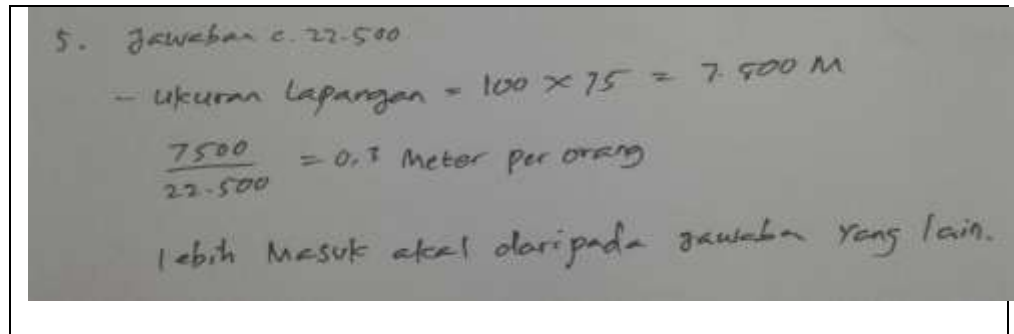 5. Jawaban c. 22.500
- Ukuran Lapangan = 100 × 75 = 7.500 M
7500
22.500
= 0.3 Meter per orang
lebih Masuk akal daripada jawaban yang lain.